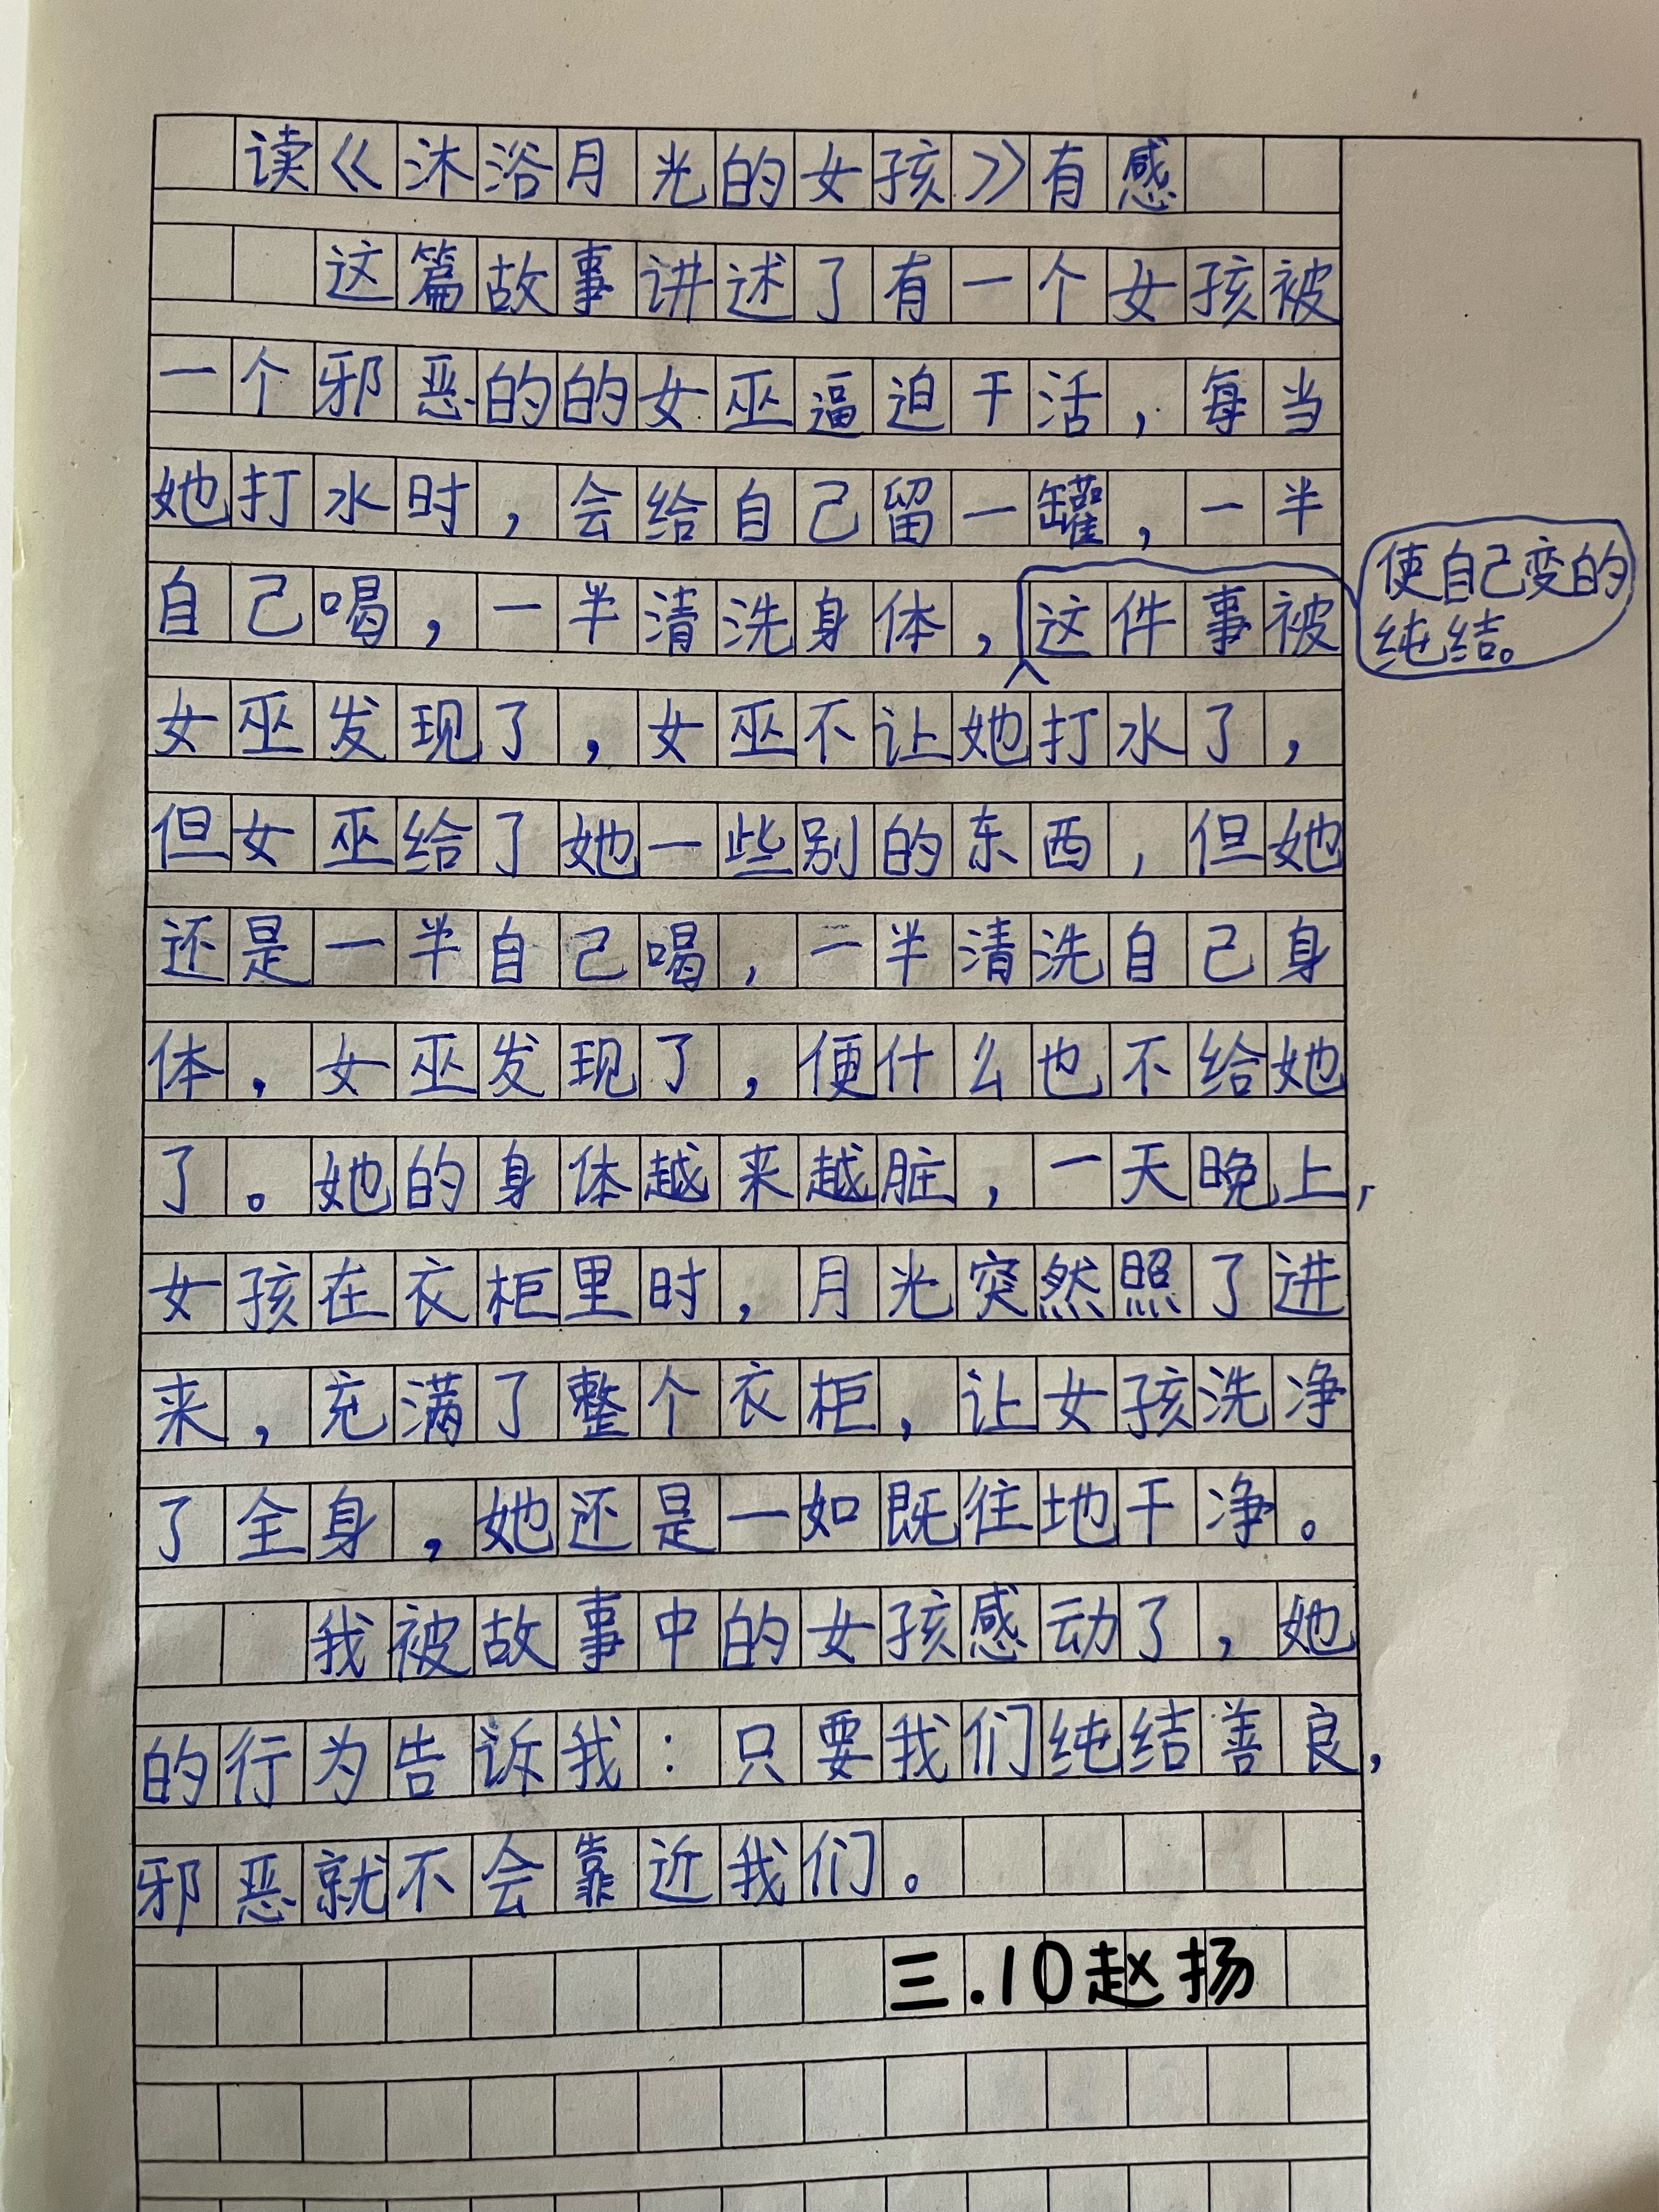 读《沐浴月光的女孩》有感
这篇故事讲述了有一个女孩被
一个邪恶的的女巫逼迫干活，每当
她打水时，会给自己留一罐，一半
自己喝，一半清洗身体，这件事被
使自己变的
纯结。
女巫发现了，女巫不让她打水了，
但女巫给了她一些别的东西，但她
还是一半自己喝，一半清洗自己身
体，女巫发现了，便什么也不给她
了。她的身体越来越脏，一天晚上，
女孩在衣柜里时，月光突然照了进
来，充满了整个衣柜，让女孩洗净
了全身，她还是一如既往地干净。
我被故事中的女孩感动了，她
的行为告诉我：只要我们纯结善良，
邪恶就不会靠近我们。
三.10赵扬